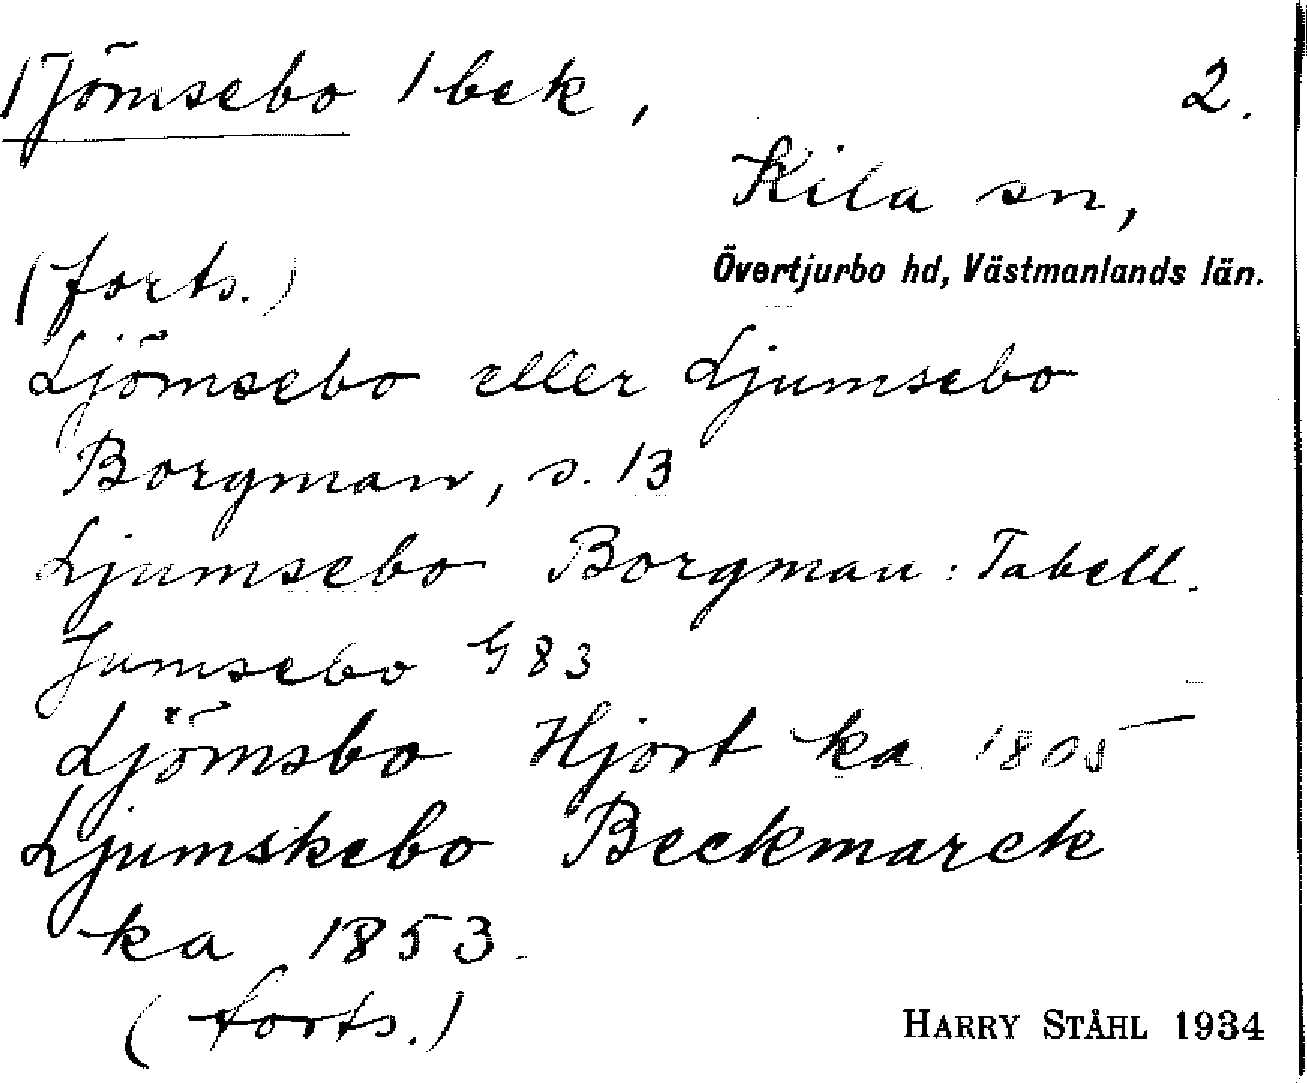 Ljömsebo 1 bek, 2.
Kila sn,
(forts.) Övertjurbo hd, Västmanlands län.
Ljömsebo eller Ljumsebo
Borgman, s. 13
Ljumsebo Borgman: Tabell.
Jumsebo G 83
Ljömsbo Hjort ka 1805
Ljumskebo Beckmarck
ka 1853.
(forts.) HARRY STÅHL 1934